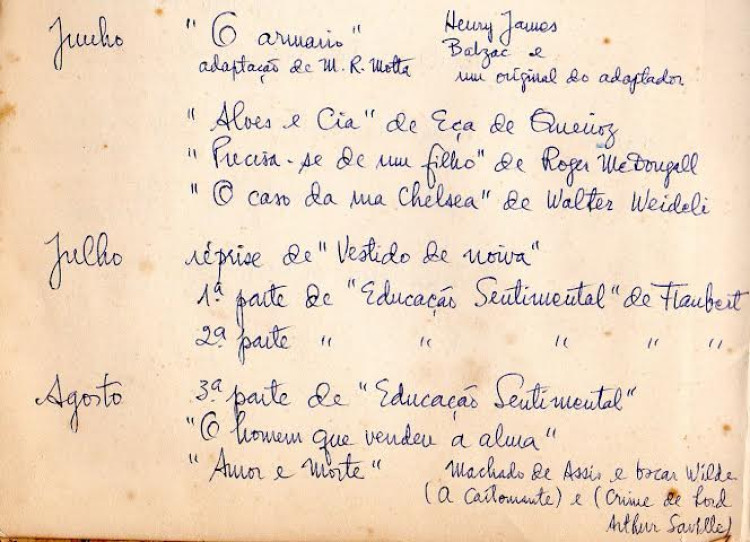 Junho " O armario " Henry James
Balzac e
adaptação de M. R. Motta um original do adaptador
" Alves e Cia " de Eça de Queiroz
" Precisa-se de um filho " de Roger McDougall
" O caso da rua Chelsea " de Walter Weideli
Julho réprise de " Vestido de noiva "
1ª parte de " Educação Sentimental " de Flaubert
2ª parte " " " " "
Agosto 3ª parte de " Educação Sentimental "
" O homem que vendeu a alma "
" Amor e Morte " Machado de Assis e Oscar Wilde
(A Cartomante) e (Crime de Lord
Arthur Saville)